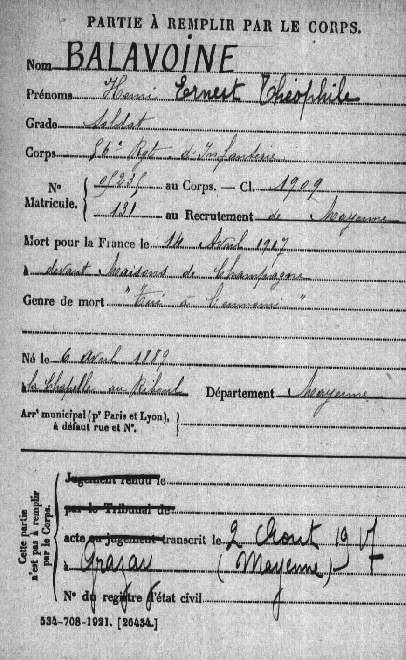 PARTIE À REMPLIR PAR LE CORPS.
Nom BALAVOINE
Prénoms Henri Ernest Théophile
Grade Soldat
Corps Rgt d'Infanterie
N° au Corps. — Cl. 1909
Matricule. 131 au Recrutement de Mayenne
Mort pour la France le 14 Avril 1917
à devant Maisons de Champagne
Genre de mort "Tué à l'ennemi"
Né le 6 Avril 1889
La Chapelle au Riboul Département Mayenne
Arrt municipal (pr Paris et Lyon),
à défaut rue et N°.
Cette partie
n'est pas à remplir
par le Corps.
Jugement rendu le
par le Tribunal de
acte ou jugement transcrit le 2 Août 1917
à Grazay (Mayenne)
N° du registre d'état civil
534-708-1921. [26434.]